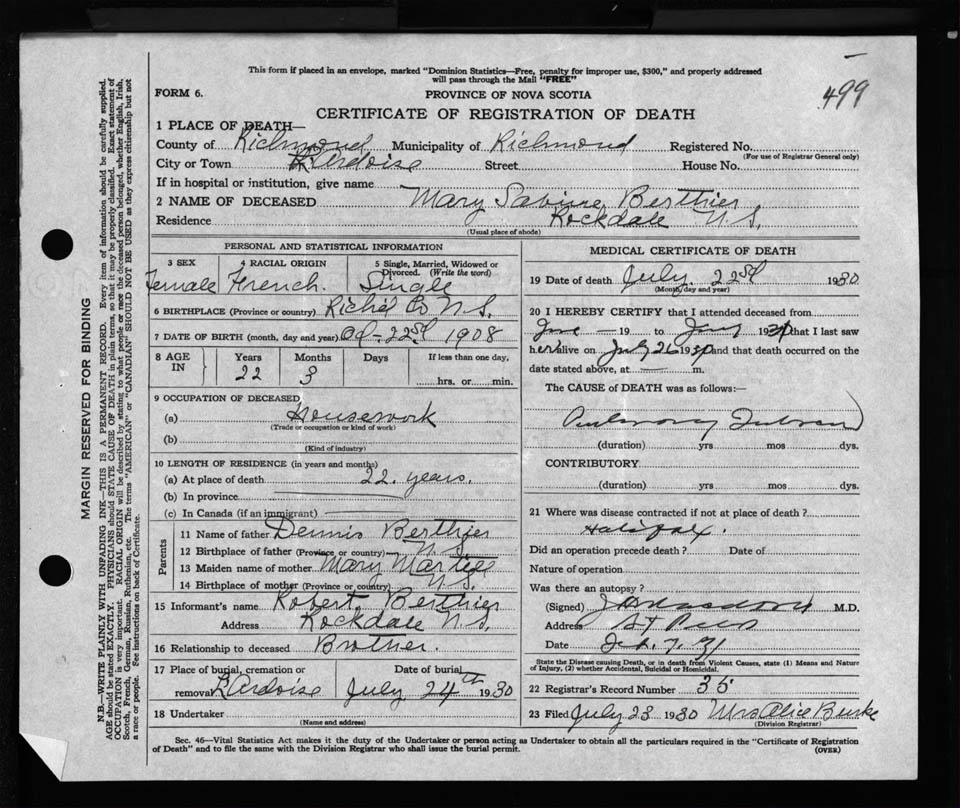 This form if placed in an envelope, marked "Dominion Statistics—Free, penalty for improper use, $300," and properly addressed
will pass through the Mail "FREE"
499
FORM 6.
PROVINCE OF NOVA SCOTIA
CERTIFICATE OF REGISTRATION OF DEATH
1 PLACE OF DEATH—
County of Richmond Municipality of Richmond Registered No.
(For use of Registrar General only)
City or Town L'Ardoise Street House No.
If in hospital or institution, give name
2 NAME OF DECEASED Mary Sabine Berthier
Residence Rockdale N.S.
(Usual place of abode)
PERSONAL AND STATISTICAL INFORMATION
3 SEX 4 RACIAL ORIGIN 5 Single, Married, Widowed or
Divorced. (Write the word)
Female French. Single
6 BIRTHPLACE (Province or country) Rich'd Co N.S.
7 DATE OF BIRTH (month, day and year) Oct-22nd 1908
8 AGE IN Years Months Days If less than one day,
22 3 hrs. or min.
9 OCCUPATION OF DECEASED
(a) Housework
(Trade or occupation or kind of work)
(b)
(Kind of industry)
10 LENGTH OF RESIDENCE (in years and months)
(a) At place of death 22. years.
(b) In province
(c) In Canada (if an immigrant)
Parents
11 Name of father Dennis Berthier
12 Birthplace of father (Province or country) N.S
13 Maiden name of mother Mary Martell
14 Birthplace of mother (Province or country) N.S.
15 Informant's name Robert Berthier
Address Rockdale N.S.
16 Relationship to deceased Brother.
17 Place of burial, cremation or Date of burial
removal L'Ardoise July 24th 1930
18 Undertaker
(Name and address)
MEDICAL CERTIFICATE OF DEATH
19 Date of death July 22nd 1930
(Month, day and year)
20 I HEREBY CERTIFY that I attended deceased from
June — 19 to 19 that I last saw
her alive on July 26 19 and that death occurred on the
date stated above, at — m.
The CAUSE of DEATH was as follows:—
Pulmonary
(duration) yrs mos dys.
CONTRIBUTORY
(duration) yrs mos dys.
21 Where was disease contracted if not at place of death?
Halifax.
Did an operation precede death? Date of
Nature of operation
Was there an autopsy?
(Signed) M.D.
Address St Peters
Date Feb. 7. 31
State the Disease causing Death, or in death from Violent Causes, state (1) Means and Nature
of Injury, (2) whether Accidental, Suicidal or Homicidal.
22 Registrar's Record Number 35
23 Filed July 23 1930 Mrs Alice Burke
(Division Registrar)
Sec. 46—Vital Statistics Act makes it the duty of the Undertaker or person acting as Undertaker to obtain all the particulars required in the "Certificate of Registration
of Death" and to file the same with the Division Registrar who shall issue the burial permit.
(OVER)
MARGIN RESERVED FOR BINDING
N.B.—WRITE PLAINLY WITH UNFADING INK—THIS IS A PERMANENT RECORD. Every item of information should be carefully supplied.
AGE should be stated EXACTLY. PHYSICIANS should STATE CAUSE OF DEATH in plain terms, so that it may be properly classified. Exact statement of
OCCUPATION is very important. RACIAL ORIGIN will be described by stating to what people or race the deceased person belonged, whether English, Irish,
Scotch, French, German, Russian, Ruthenian, etc. The terms "AMERICAN" or "CANADIAN" SHOULD NOT BE USED as they express citizenship but not
a race or people. See instructions on back of Certificate.